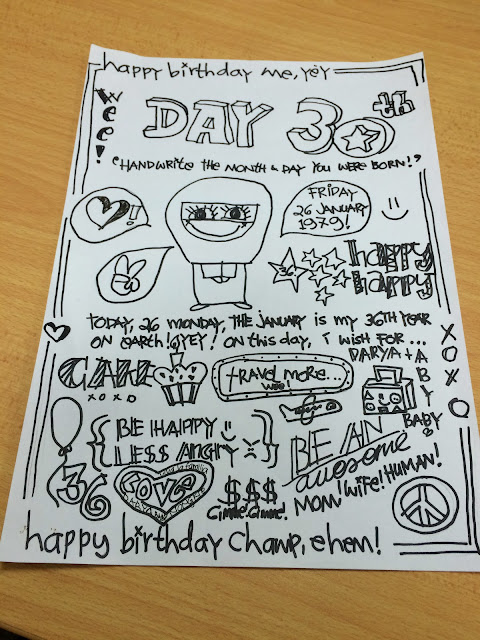 happy birthday me, yey
wee!
DAY 30th
"HANDWRITE THE MONTH & DAY YOU WERE BORN!"
!
FRIDAY
26 JANUARY
1979!
36
happy
happy
TODAY, 26 MONDAY, THE JANUARY is my 36TH YEAR
ON EARTH! YEY! ON this DAY, i WISH FOR...
CAKE
xoxo
tRAVEL MORE...
wee!
DARYA + A BABY
BABY
XOXO
{ BE HAPPY
LE$$ ANGRY }
BE AN
awesome
MOM! WIFE! HUMAN!
36
LOVE
$$$
Gimme! Gimme!
happy birthday Champ, ehem!